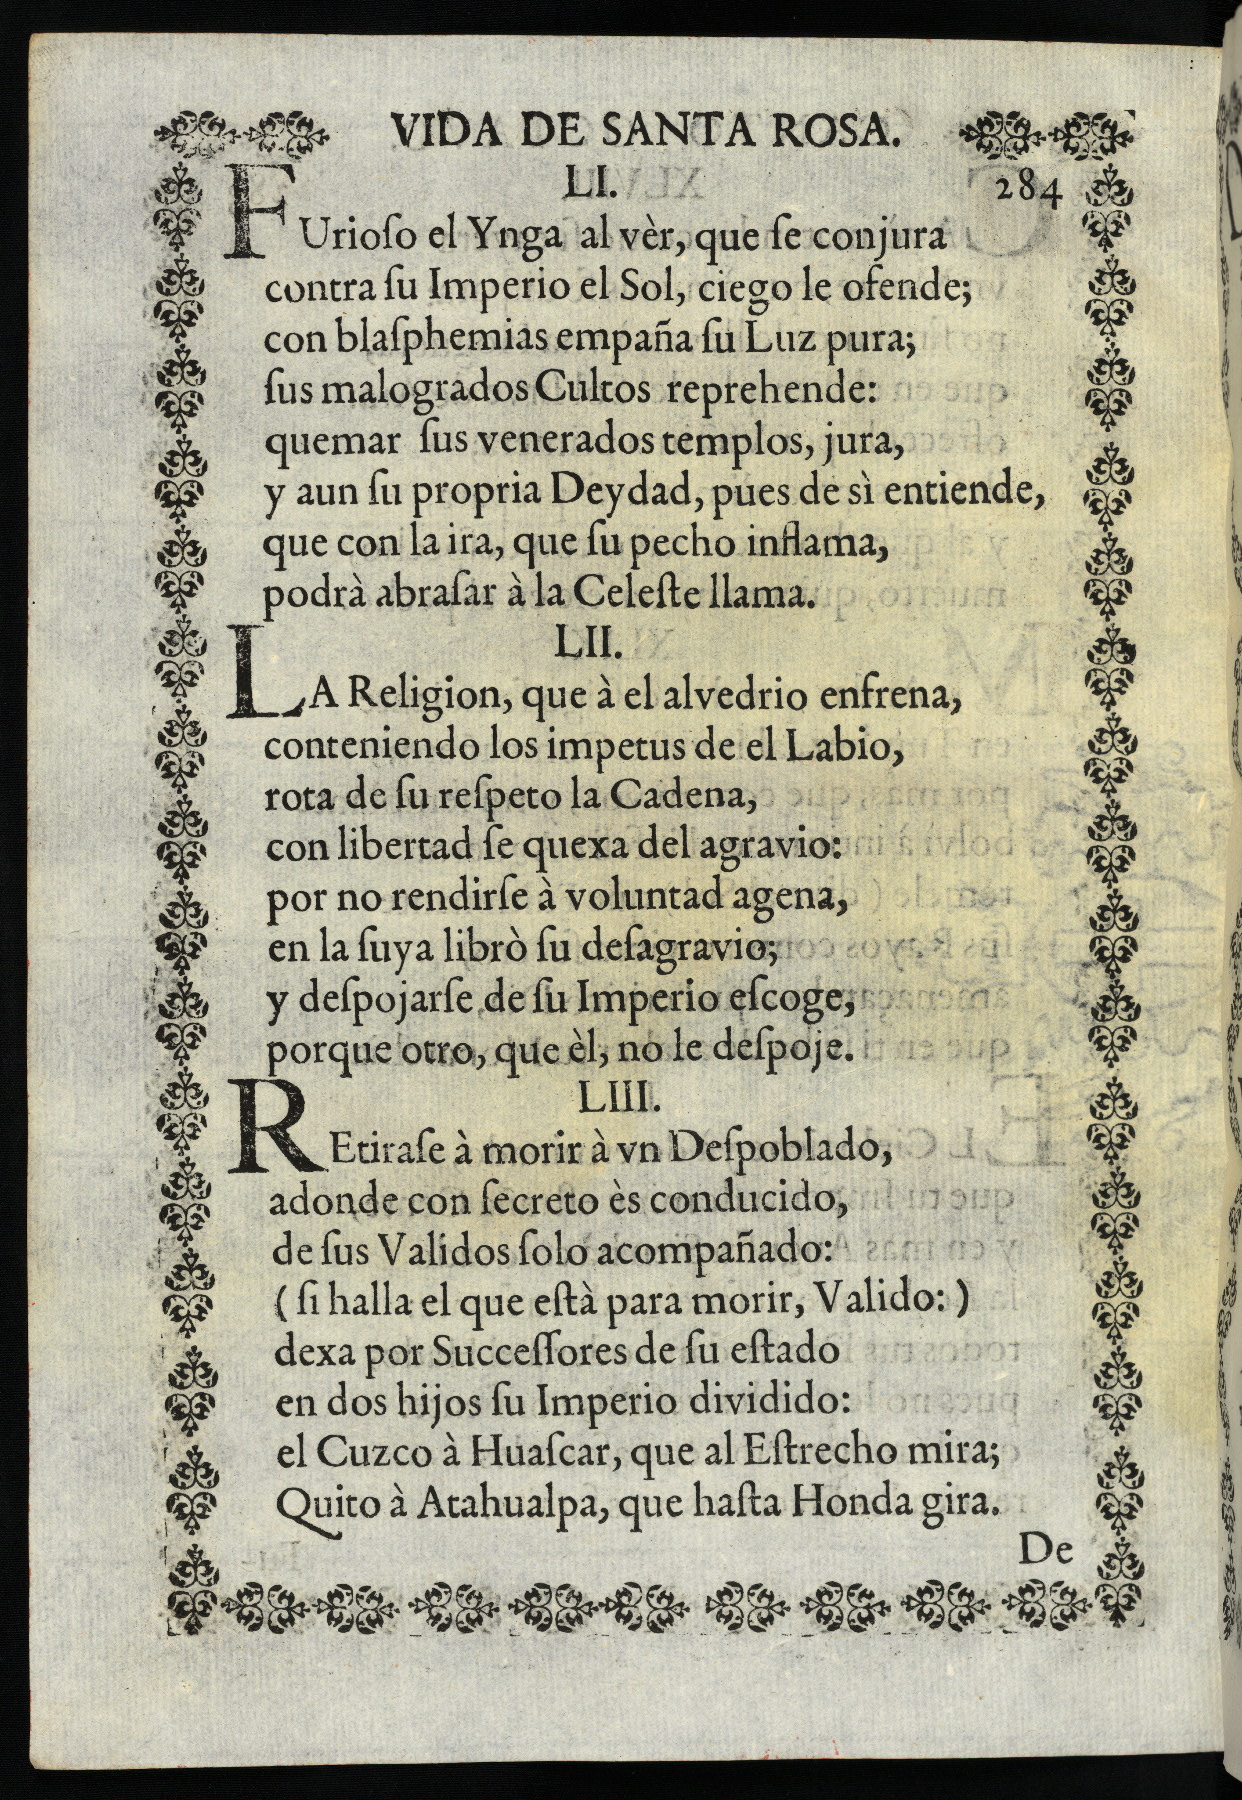 VIDA DE SANTA ROSA.
LI. 284
FUrioſo el Ynga al vèr, que ſe conjura
contra ſu Imperio el Sol, ciego le ofende;
con blaſphemias empaña ſu Luz pura;
ſus malogrados Cultos reprehende:
quemar ſus venerados templos, jura,
y aun ſu propria Deydad, pues de sì entiende,
que con la ira, que ſu pecho inflama,
podrà abraſar à la Celeſte llama.
LII.
LA Religion, que à el alvedrio enfrena,
conteniendo los impetus de el Labio,
rota de ſu reſpeto la Cadena,
con libertad ſe quexa del agravio:
por no rendirſe à voluntad agena,
en la ſuya librò ſu deſagravio;
y deſpojarſe de ſu Imperio eſcoge,
porque otro, que èl, no le deſpoje.
LIII.
REtiraſe à morir à vn Deſpoblado,
adonde con ſecreto ès conducido,
de ſus Validos ſolo acompañado:
( ſi halla el que eſtà para morir, Valido: )
dexa por Succeſſores de ſu eſtado
en dos hijos ſu Imperio dividido:
el Cuzco à Huaſcar, que al Eſtrecho mira;
Quito à Atahualpa, que haſta Honda gira.
De